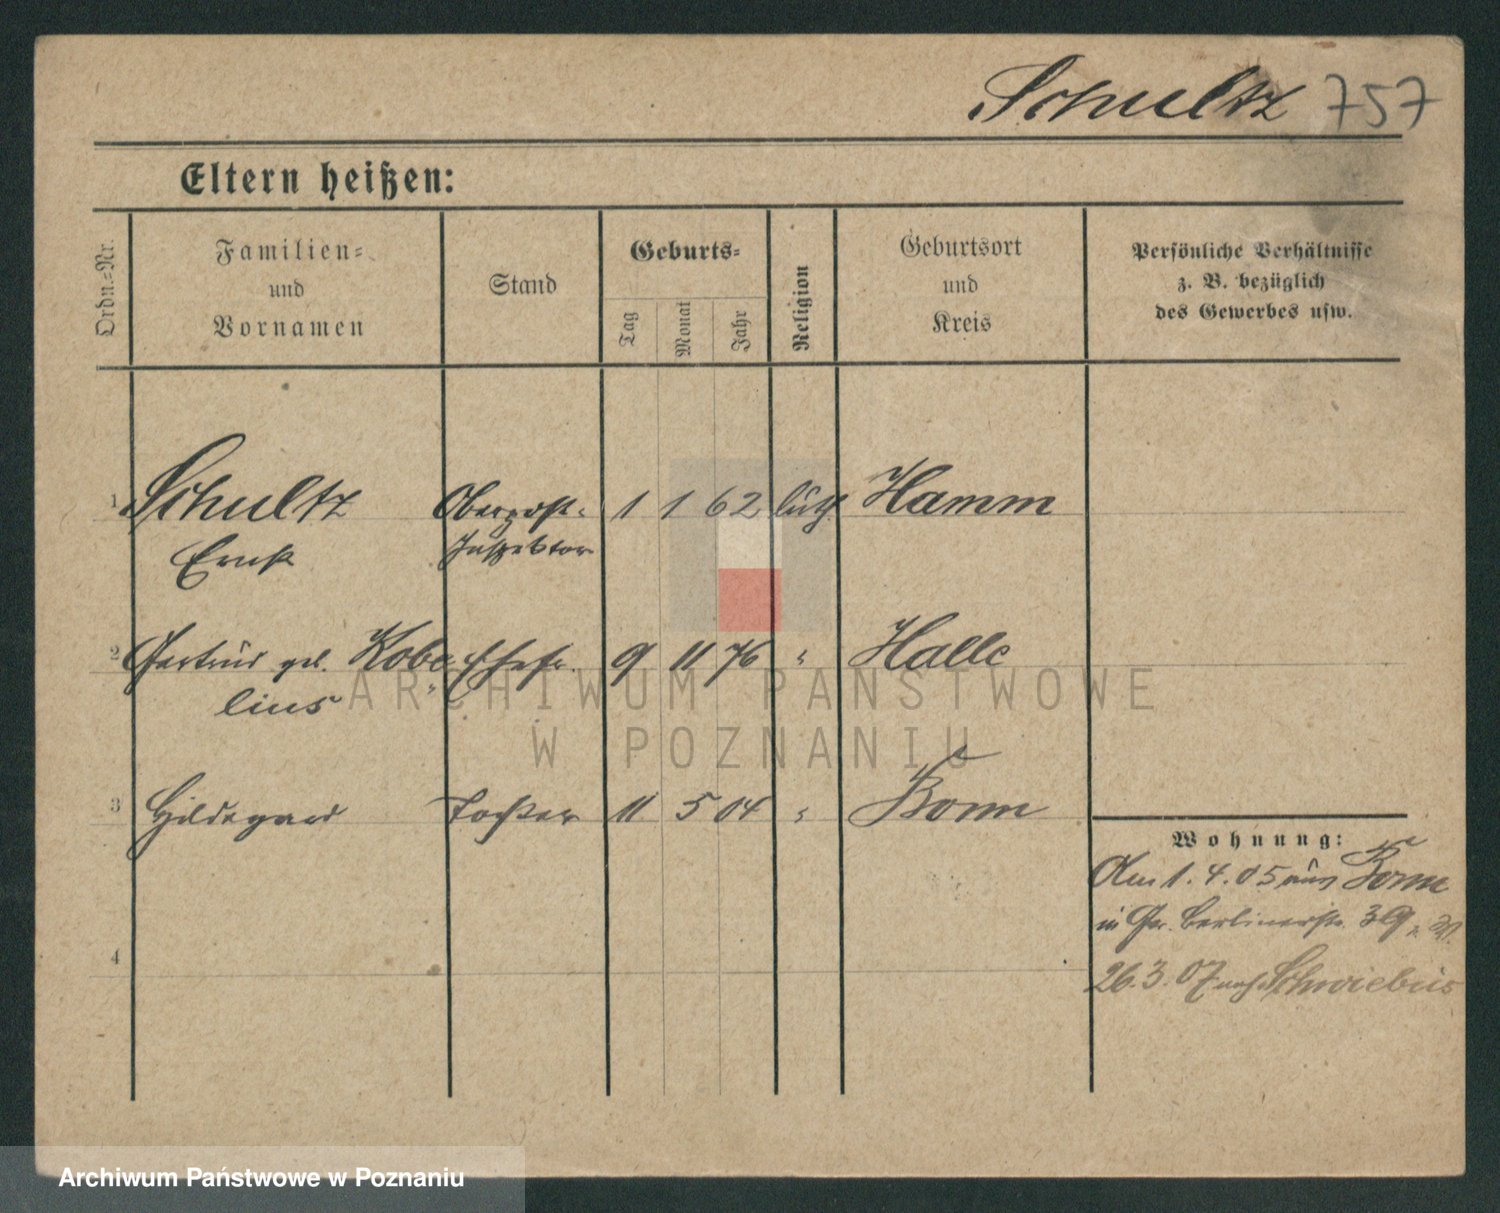 Schultz 757
Eltern heißen:
Ordn.-Nr.
Familien-
und
Vornamen
Stand
Geburts-
Tag
Monat
Jahr
Religion
Geburtsort
und
Kreis
Persönliche Verhältnisse
z. B. bezüglich
des Gewerbes usw.
1 Schultz Oberpost- 1 1 62 luth. Hamm
Ernst Inspektor
2 Gertrud geb. Kobe- Ehefr. 9 11 76 " Halle
lius
ARCHIWUM PAŃSTWOWE
W POZNANIU
3 Hildegard Tochter 11 5 04 " Bonn
4
Wohnung:
Am 1.4.05 aus Bonn
in Gr. Berlinerstr. 39
26.3.07 nach Schwiebus
Archiwum Państwowe w Poznaniu